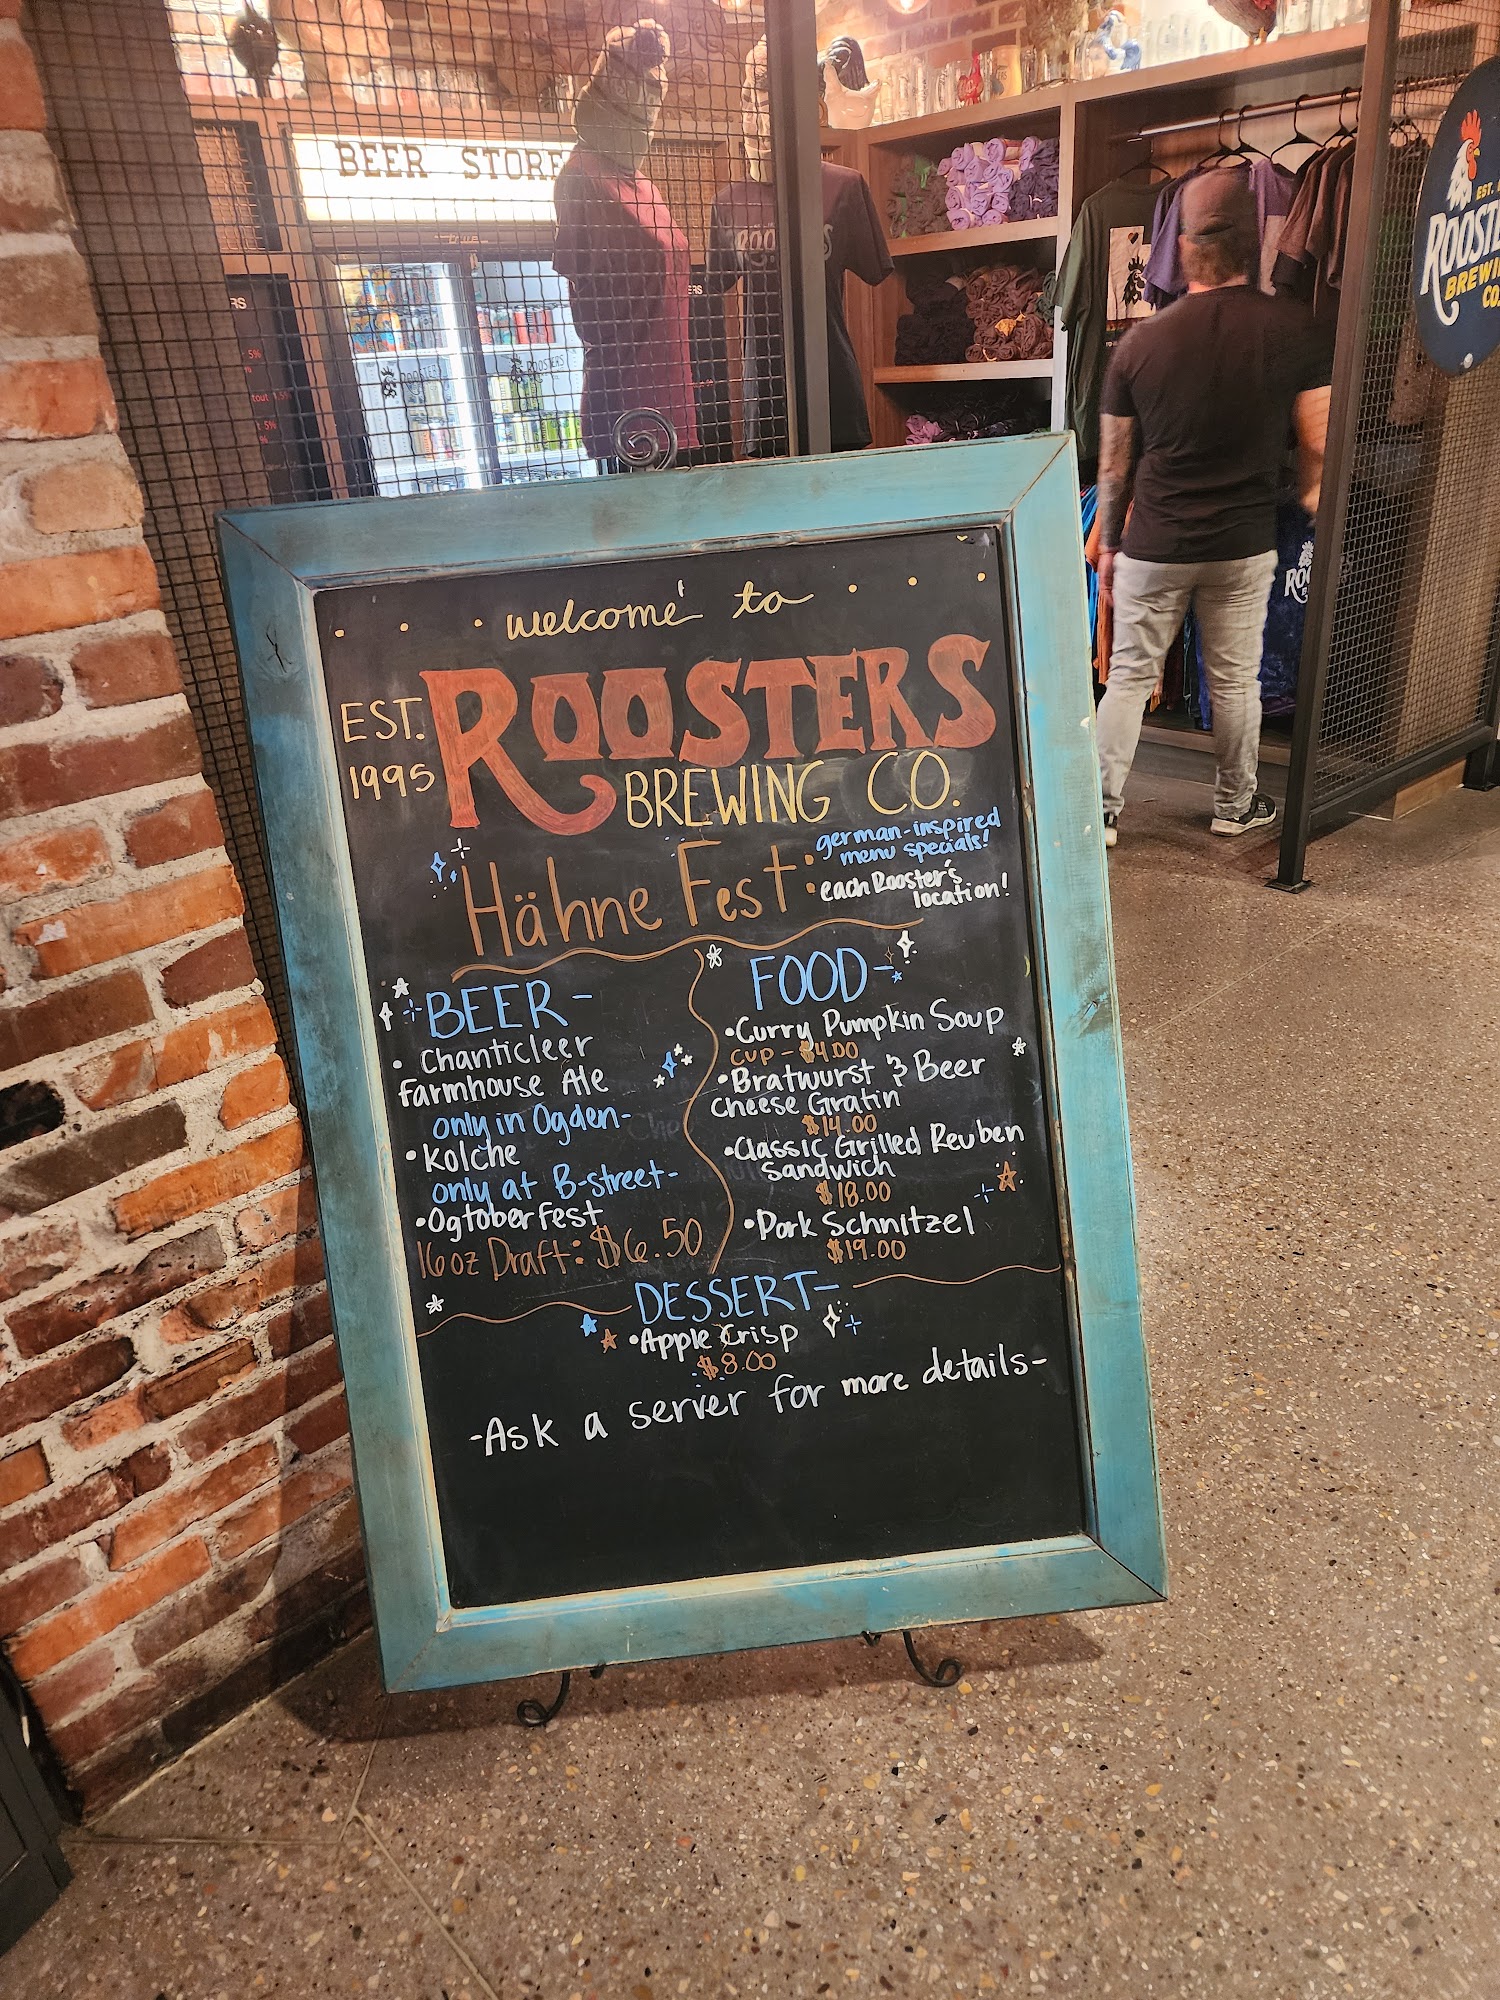 BEER STORE
ROOSTERS
EST.
ROOSTE
BREWI
CO.
welcome to
EST.
1995
ROOSTERS
BREWING CO.
Hähne Fest:
german-inspired
menu specials!
each Rooster's
location!
BEER-
• Chanticleer
Farmhouse Ale
only in Ogden-
• Kolche
only at B-street-
• Ogtoberfest
16oz Draft: $6.50
FOOD-
• Curry Pumpkin Soup
CUP - $4.00
• Bratwurst & Beer
Cheese Gratin
$14.00
• Classic Grilled Reuben
Sandwich
$18.00
• Pork Schnitzel
$19.00
DESSERT-
• Apple Crisp
$8.00
-Ask a server for more details-